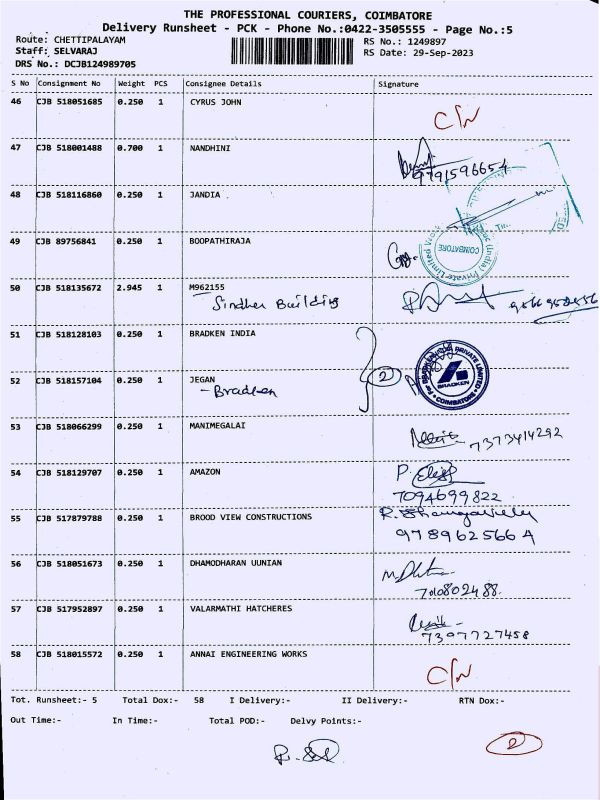 THE PROFESSIONAL COURIERS, COIMBATORE
Delivery Runsheet - PCK - Phone No.:0422-3505555 - Page No.:5
Route: CHETTIPALAYAM RS No.: 1249897
Staff: SELVARAJ RS Date: 29-Sep-2023
DRS No.: DCJB124989705
S No Consignment No Weight PCS Consignee Details Signature
46 CJB 518051685 0.250 1 CYRUS JOHN C/N
47 CJB 518001488 0.700 1 NANDHINI
9791596654
48 CJB 518116860 0.250 1 JANDIA
49 CJB 89756841 0.250 1 BOOPATHIRAJA
COIMBATORE
50 CJB 518135672 2.945 1 M962155
Sindhu Building
51 CJB 518128103 0.250 1 BRADKEN INDIA
2
52 CJB 518157104 0.250 1 JEGAN
- Bradken
BRADKEN
COIMBATORE
53 CJB 518066299 0.250 1 MANIMEGALAI
7373414292
54 CJB 518129707 0.250 1 AMAZON
7094699822
55 CJB 517879788 0.250 1 BROOD VIEW CONSTRUCTIONS
9789625664
56 CJB 518051673 0.250 1 DHAMODHARAN UUNIAN
57 CJB 517952897 0.250 1 VALARMATHI HATCHERES
7397727458
58 CJB 518015572 0.250 1 ANNAI ENGINEERING WORKS C/N
Tot. Runsheet:- 5 Total Dox:- 58 I Delivery:- II Delivery:- RTN Dox:-
Out Time:- In Time:- Total POD:- Delvy Points:-
2